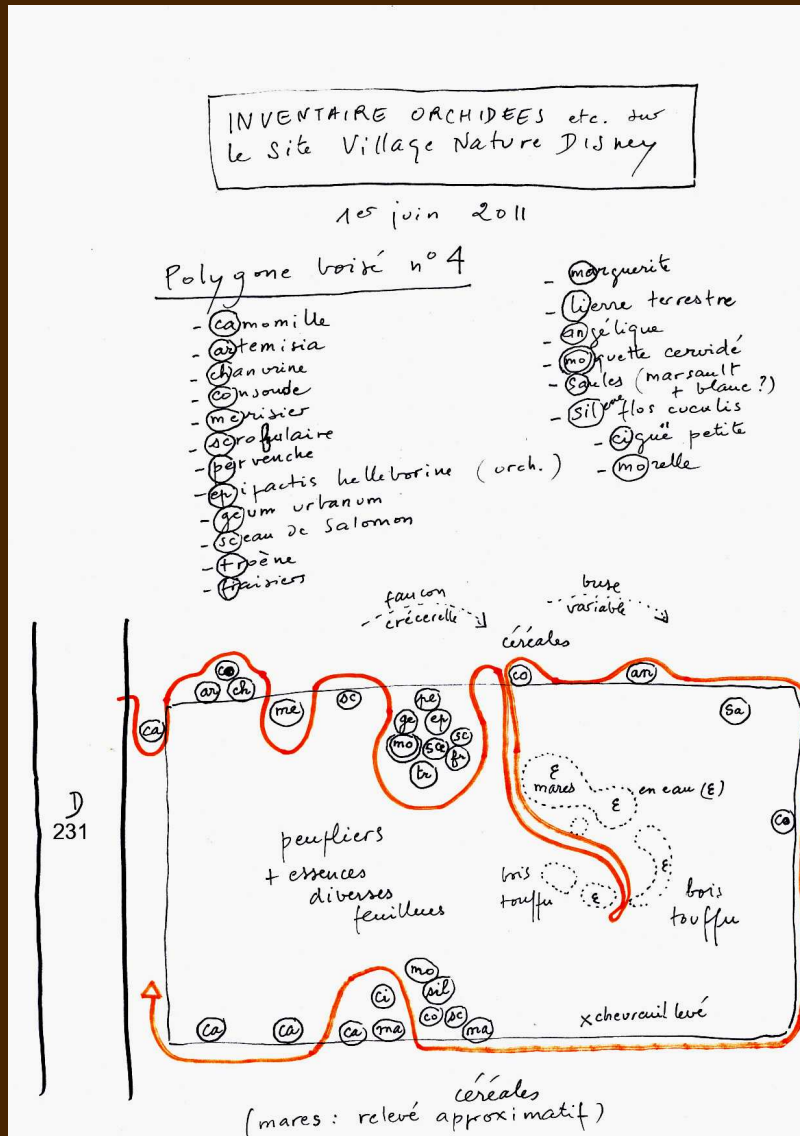 INVENTAIRE ORCHIDEES etc. sur
le Site Village Nature Disney
1er juin 2011
Polygone boisé n° 4
- camomille
- artemisia
- chanvrine
- consoude
- merisier
- scrofulaire
- pervenche
- epipactis helleborine (orch.)
- geum urbanum
- sceau de Salomon
- troène
- fraisiers
- marguerite
- lierre terrestre
- angélique
- moquette cervidé
- saules (marsault
+ blanc ?)
- silene flos cuculis
- ciguë petite
- morelle
faucon
crécerelle
buse
variable
céréales
co
ar
ch
ca
me
sc
pe
ge
ep
mo
sce
sc
fr
tr
co
an
sa
co
D
231
ε
mares
ε
en eau (ε)
ε
ε
peupliers
+ essences
diverses
feuillues
bois
touffu
bois
touffu
mo
sil
ci
co
sc
ca
ca
ca
ma
ma
x chevreuil levé
céréales
(mares : relevé approximatif)